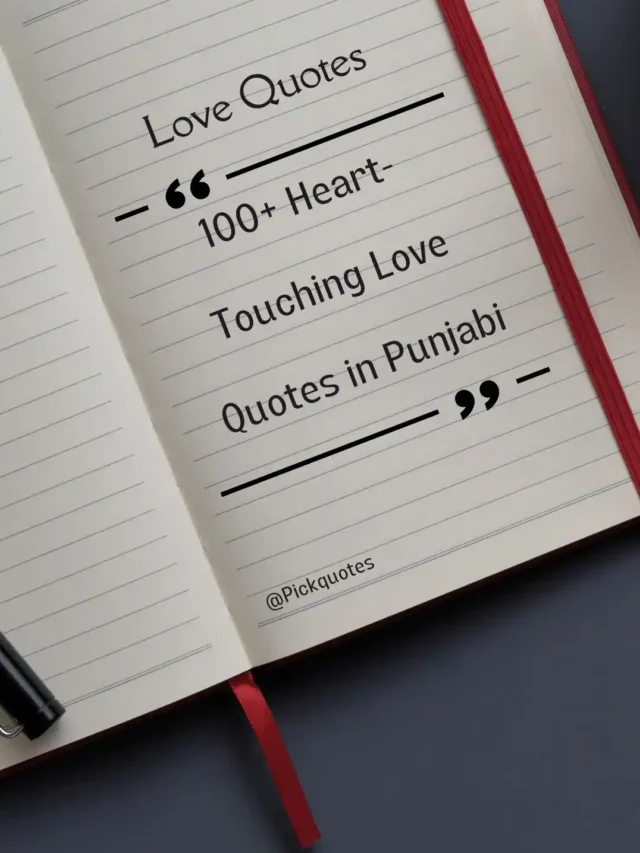 Love Quotes
“
100+ Heart-
Touching Love
Quotes in Punjabi
”
@Pickquotes